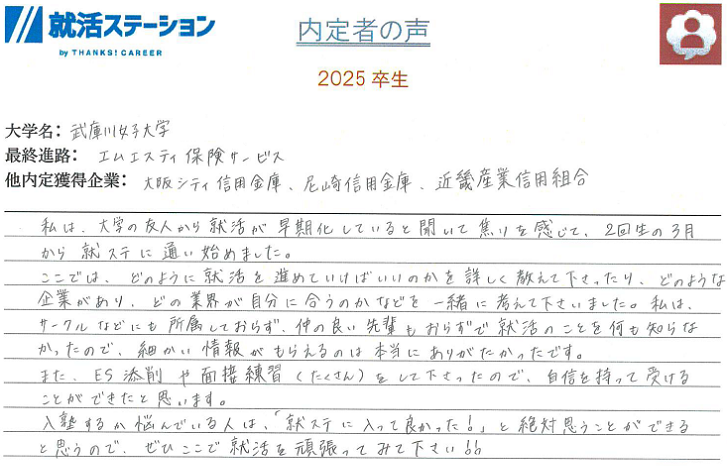 就活ステーション
by THANKS! CAREER
内定者の声
2025 卒生
大学名： 武庫川女子大学
最終進路： エムエスティ保険サービス
他内定獲得企業： 大阪シティ信用金庫、尼崎信用金庫、近畿産業信用組合
私は、大学の友人から就活が早期化していると聞いて焦りを感じて、2回生の3月
から就ステに通い始めました。
ここでは、どのように就活を進めていけばいいのかを詳しく教えて下さったり、どのような
企業があり、どの業界が自分に合うのかなどを一緒に考えて下さいました。私は、
サークルなどにも所属しておらず、仲の良い先輩もおらずで就活のことを何も知らな
かったので、細かい情報がもらえるのは本当にありがたかったです。
また、ES添削や面接練習（たくさん）をして下さったので、自信を持って受ける
ことができたと思います。
入塾するか悩んでいる人は、「就ステに入って良かった！」と絶対思うことができる
と思うので、ぜひここで就活を頑張ってみて下さい!!